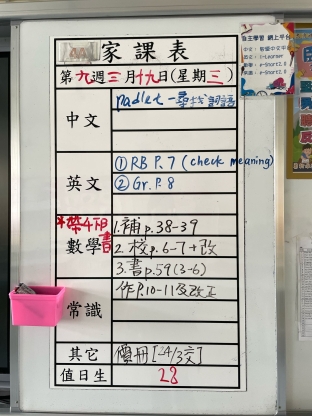 家課表
第九週三月十九日(星期三)
自主學習 網上平台
中文
padlet - 尋找詞語
英文
①RB P.7 (check meaning)
②Gr. P.8
數學
*帶4下B書
1.補p.38-39
2.校p.6-7+改
3.書p.59(3-6)
常識
作P.10-11及改正
其它
價冊[24/3交]
值日生
28